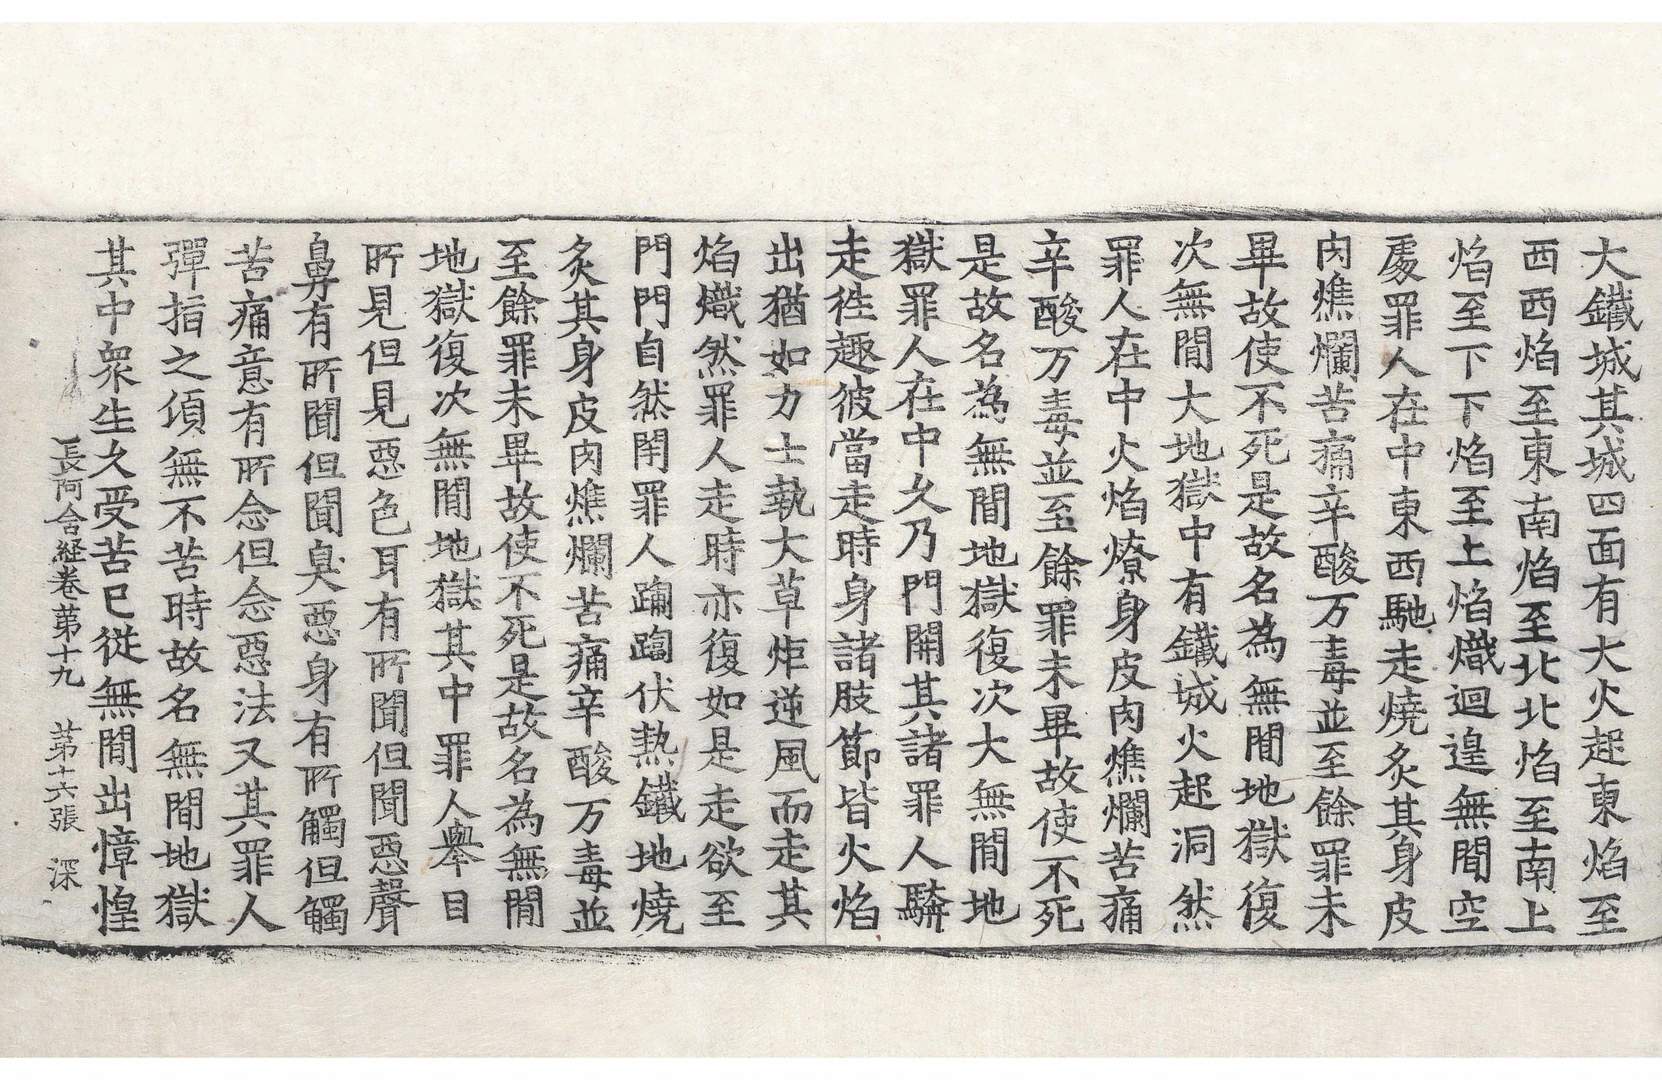 大鐵城其城四面有大火起東焰至
西西焰至東南焰至北北焰至南上
焰至下下焰至上焰熾迴遑無間空
處罪人在中東西馳走燒炙其身皮
肉燋爛苦痛辛酸万毒並至餘罪未
畢故使不死是故名為無間地獄復
次無間大地獄中有鐵城火起洞然
罪人在中火焰燎身皮肉燋爛苦痛
辛酸万毒並至餘罪未畢故使不死
是故名為無間地獄復次大無間地
獄罪人在中久乃門開其諸罪人騎
走徃趣彼當走時身諸肢節皆火焰
出猶如力士執大草炬逆風而走其
焰熾然罪人走時亦復如是走欲至
門門自然閇罪人䠒䠒伏熱鐵地燒
炙其身皮肉燋爛苦痛辛酸万毒並
至餘罪未畢故使不死是故名為無間
地獄復次無間地獄其中罪人舉目
所見但見惡色耳有所聞但聞惡聲
鼻有所聞但聞臭惡身有所觸但觸
苦痛意有所念但念惡法又其罪人
彈指之頃無不苦時故名無間地獄
其中衆生久受苦已從無間出慞惶
長阿含経卷苐十九　苐十六張　深